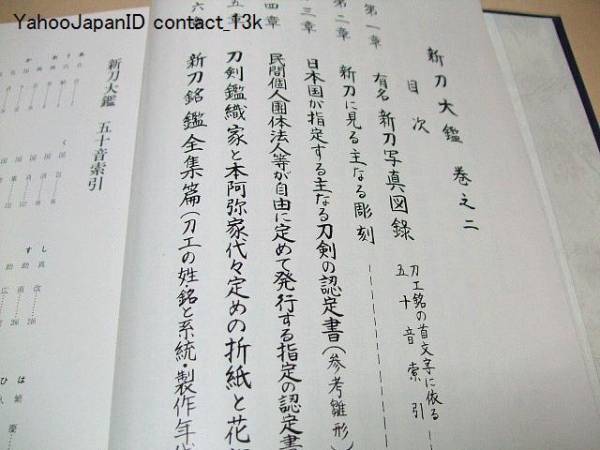 YahooJapanID contact_13k
新刀大鑑 巻之二
目次
第一章 有名新刀写真図録
刀工銘の首文字に依る
五十音索引
第二章 新刀に見る主なる彫刻
三章 日本国が指定する主なる刀剣の認定書(参考雛形)
四章 民間個人団体法人等が自由に定めて発行する指定の認定書
五章 刀剣鑑識家と本阿弥家代々定めの折紙と花押
六章 新刀銘鑑全集篇(刀工の姓・銘と系統・製作年代
新刀大鑑 五十音索引